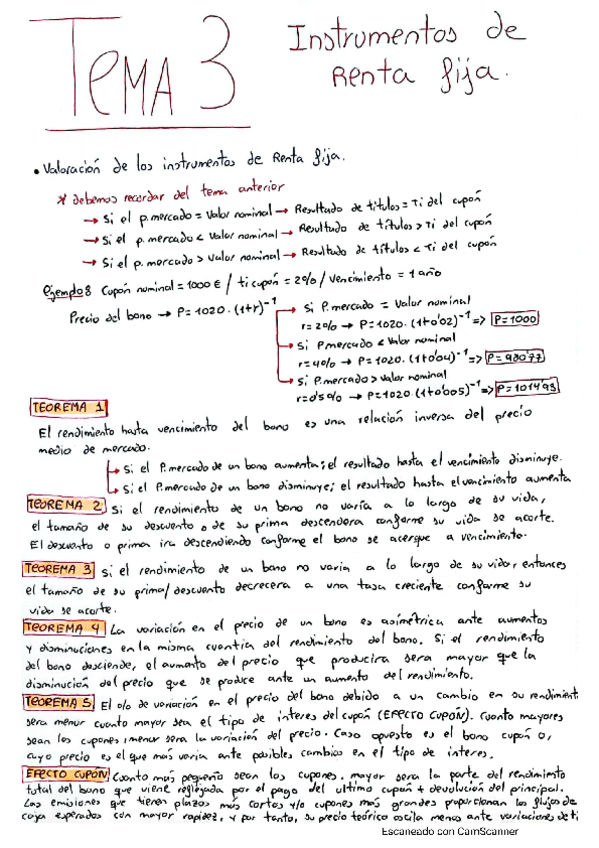 TEMA 3
Instrumentos de
Renta fija.
• Valoración de los instrumentos de Renta fija.
* debemos recordar del tema anterior
→ Si el p.mercado = Valor nominal → Resultado de títulos = Ti del cupón
→ Si el p. mercado < Valor nominal → Resultado de títulos > Ti del cupón
→ Si el p. mercado > Valor nominal → Resultado de títulos < Ti del cupón
Ejemplo: Cupón nominal = 1000 € / ti cupón = 2% / Vencimiento = 1 año
Precio del bono → P = 1020 · (1+r)⁻¹
→ Si P.mercado = Valor nominal
r = 2% → P = 1020 · (1+0'02)⁻¹ => P = 1000
→ Si Pmercado < Valor nominal
r = 4% → P = 1020 · (1+0'04)⁻¹ => P = 980'77
→ Si P.mercado > Valor nominal
r = 0'5% → P = 1020 · (1+0'005)⁻¹ => P = 1014'93
TEOREMA 1
El rendimiento hasta vencimiento del bono es una relación inversa del precio
medio de mercado.
→ Si el P.mercado de un bono aumenta; el resultado hasta el vencimiento disminuye.
→ Si el P.mercado de un bono disminuye; el resultado hasta el vencimiento aumenta
TEOREMA 2 Si el rendimiento de un bono no varía a lo largo de su vida,
el tamaño de su descuento o de su prima descendera conforme su vida se acorte.
El descuento o prima ira descendiendo conforme el bono se acerque a vencimiento.
TEOREMA 3 si el rendimiento de un bono no varia a lo largo de su vida, entonces
el tamaño de su prima/descuento decrecera a una tasa creciente conforme su
vida se acorte.
TEOREMA 4 La variación en el precio de un bono es asimétrica ante aumentos
y disminuciones en la misma cuantia del rendimiento del bono. Si el rendimiento
del bono desciende, el aumento del precio que producira sera mayor que la
disminución del precio que se produce ante un aumento del rendimiento.
TEOREMA 5 El % de variación en el precio del bono debido a un cambio en su rendimient
sera menor cuanto mayor sea el tipo de interes del cupón (EFECTO CUPÓN). Cuanto mayores
sean los cupones, menor sera la variación del precio. Caso opuesto es el bono cupón 0,
cuyo precio es el que más varia ante posibles cambios en el tipo de interes.
EFECTO CUPÓN Cuanto más pequeño sean los cupones, mayor sera la parte del rendimiento
total del bono que viene reflejada por el pago del ultimo cupón + devolución del principal.
Las emisiones que tienen plazos más cortos y/o cupones más grandes proporcionan los flujos de
caja esperados con mayor rapidez, y por tanto, su precio teórico oscila menos ante variaciones de ti
Escaneado con CamScanner